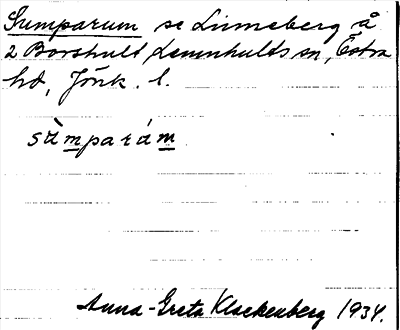 Sumparum se Linneberg å
2 Borshult Lemnhults sn, Östra
hd, Jönk. l.
sùmparám
Anna-Greta Klackenberg 1934.